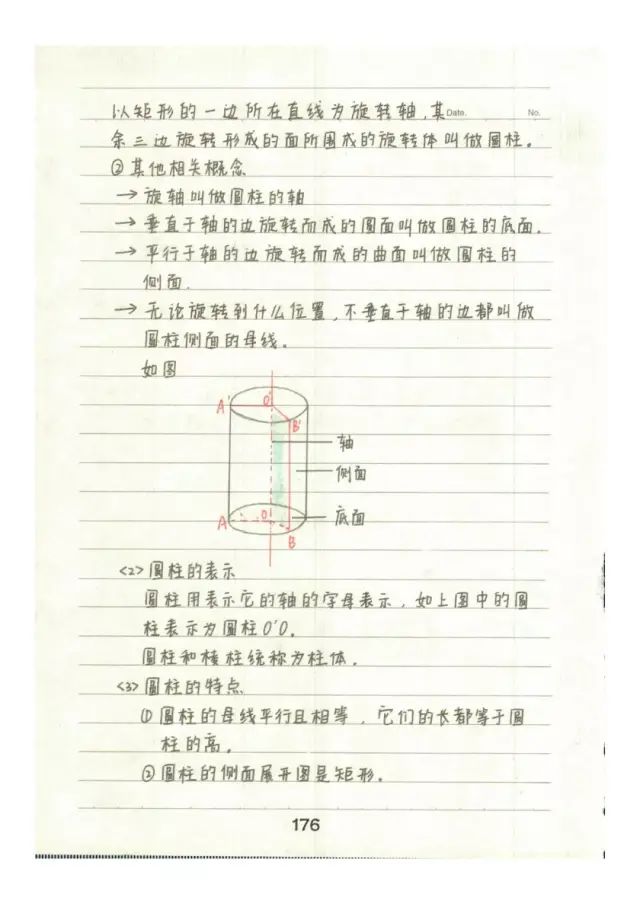 以矩形的一边所在直线为旋转轴,其 Date. No.
余三边旋转形成的面所围成的旋转体叫做圆柱。
②其他相关概念
→ 旋轴叫做圆柱的轴
→ 垂直于轴的边旋转而成的圆面叫做圆柱的底面.
→ 平行于轴的边旋转而成的曲面叫做圆柱的
侧面.
→ 无论旋转到什么位置,不垂直于轴的边都叫做
圆柱侧面的母线。
如图
A' O' B'
轴
侧面
A O 底面
B
<2>圆柱的表示
圆柱用表示它的轴的字母表示,如上图中的圆
柱表示为圆柱O'O.
圆柱和棱柱统称为柱体.
<3>圆柱的特点
①圆柱的母线平行且相等,它们的长都等于圆
柱的高。
②圆柱的侧面展开图是矩形.
176